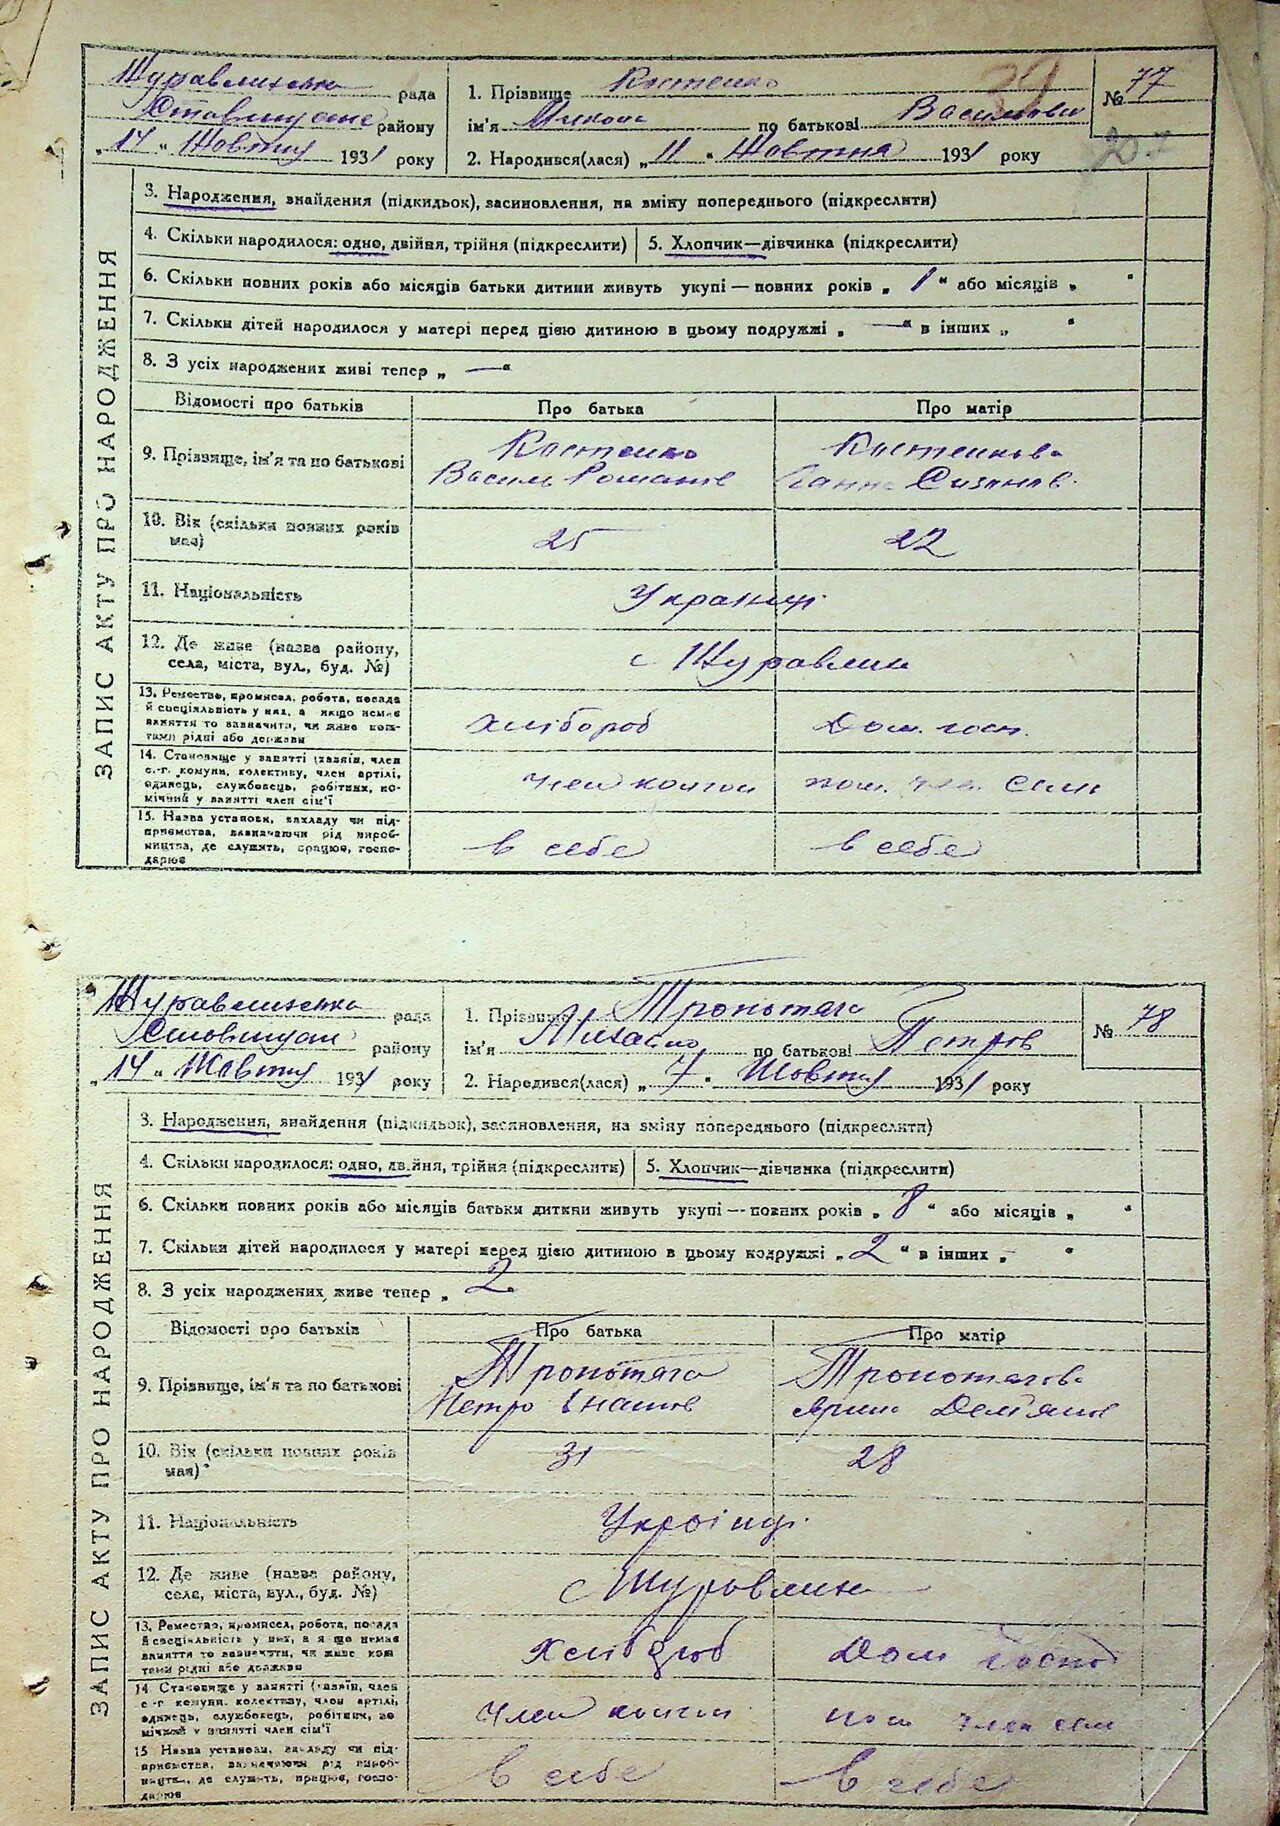 Журавлиська рада
Ставищане району
„ 14 " Жовтня 1931 року
1. Прізвище Костенко
ім'я Микола по батькові Васильови
2. Народився(лася) „ 11 " Жовтня 1931 року
№ 77
ЗАПИС АКТУ ПРО НАРОДЖЕННЯ
3. Народження, знайдення (підкидьок), засиновлення, на зміну попереднього (підкреслити)
4. Скільки народилося: одно, двійня, трійня (підкреслити) 5. Хлопчик—дівчинка (підкреслити)
6. Скільки повних років або місяців батьки дитини живуть укупі — повних років „ 1 " або місяців „ "
7. Скільки дітей народилося у матері перед цією дитиною в цьому подружжі „ — " в інших „ "
8. З усіх народжених живі тепер „ — "
Відомості про батьків Про батька Про матір
9. Прізвище, ім'я та по батькові Костенко Костенкова
Василь Романов Ганна
10. Вік (скільки повних років має) 25 22
11. Національність Українці
12. Де живе (назва району, села, міста, вул., буд. №) с Журавлин
13. Ремество, промисел, робота, посада
й спеціяльність у них, а якщо немає
заняття то зазначити, чи живе кош-
тами рідні або держави
хлібороб Дом. госп.
14. Становище у занятті (хазяїн, член
с.-г комуни, колективу, член артілі,
одинець, службовець, робітник, по-
мічний у занятті член сім'ї
член колгосп пом. член сем
15. Назва установи, закладу чи під-
приємства, зазначаючи рід вироб-
ництва, де служить, працює, госпо-
дарює
в себе в себе
Журавлиська рада
району
„ 14 " Жовтня 1931 року
1. Прізвище Тропотяга
ім'я Михайло по батькові Петров
2. Народився(лася) „ 7 " Жовтня 1931 року
№ 78
ЗАПИС АКТУ ПРО НАРОДЖЕННЯ
3. Народження, знайдення (підкидьок), засиновлення, на зміну попереднього (підкреслити)
4. Скільки народилося: одно, двійня, трійня (підкреслити) 5. Хлопчик—дівчинка (підкреслити)
6. Скільки повних років або місяців батьки дитини живуть укупі — повних років „ 8 " або місяців „ "
7. Скільки дітей народилося у матері перед цією дитиною в цьому подружжі „ 2 " в інших „ "
8. З усіх народжених живе тепер „ 2
Відомості про батьків Про батька Про матір
9. Прізвище, ім'я та по батькові Тропотяга Тропотягова
Петро Ігнатов Ярина Дем'янов
10. Вік (скільки повних років має) 31 28
11. Національність Українці
12. Де живе (назва району, села, міста, вул., буд. №) с Журавлин
13. Ремество, промисел, робота, посада
й спеціяльність у них, а якщо немає
заняття то зазначити, чи живе кош-
тами рідні або держави
Хлібороб Дом господ
14. Становище у занятті (хазяїн, член
с.-г комуни, колективу, член артілі,
одинець, службовець, робітник, по-
мічний у занятті член сім'ї
член колгосп пом член сем
15 Назва установи, закладу чи під-
приємства, зазначаючи рід вироб-
ництва, де служить, працює, госпо-
дарює
в себе в себе